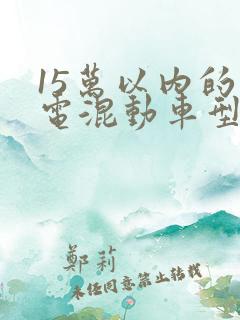 15萬以內的
電混動車型
鄭莉
未經同意禁止轉載